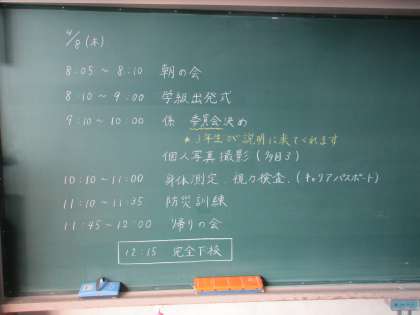 4/8(木)
8:05～8:10 朝の会
8:10～9:00 学級出発式
9:10～10:00 係 委員会決め
★3年生が説明に来てくれます
個人写真撮影
10:10～11:00 身体測定、視力検査、(キャリアパスポート)
11:10～11:35 防災訓練
11:45～12:00 帰りの会
12:15 完全下校